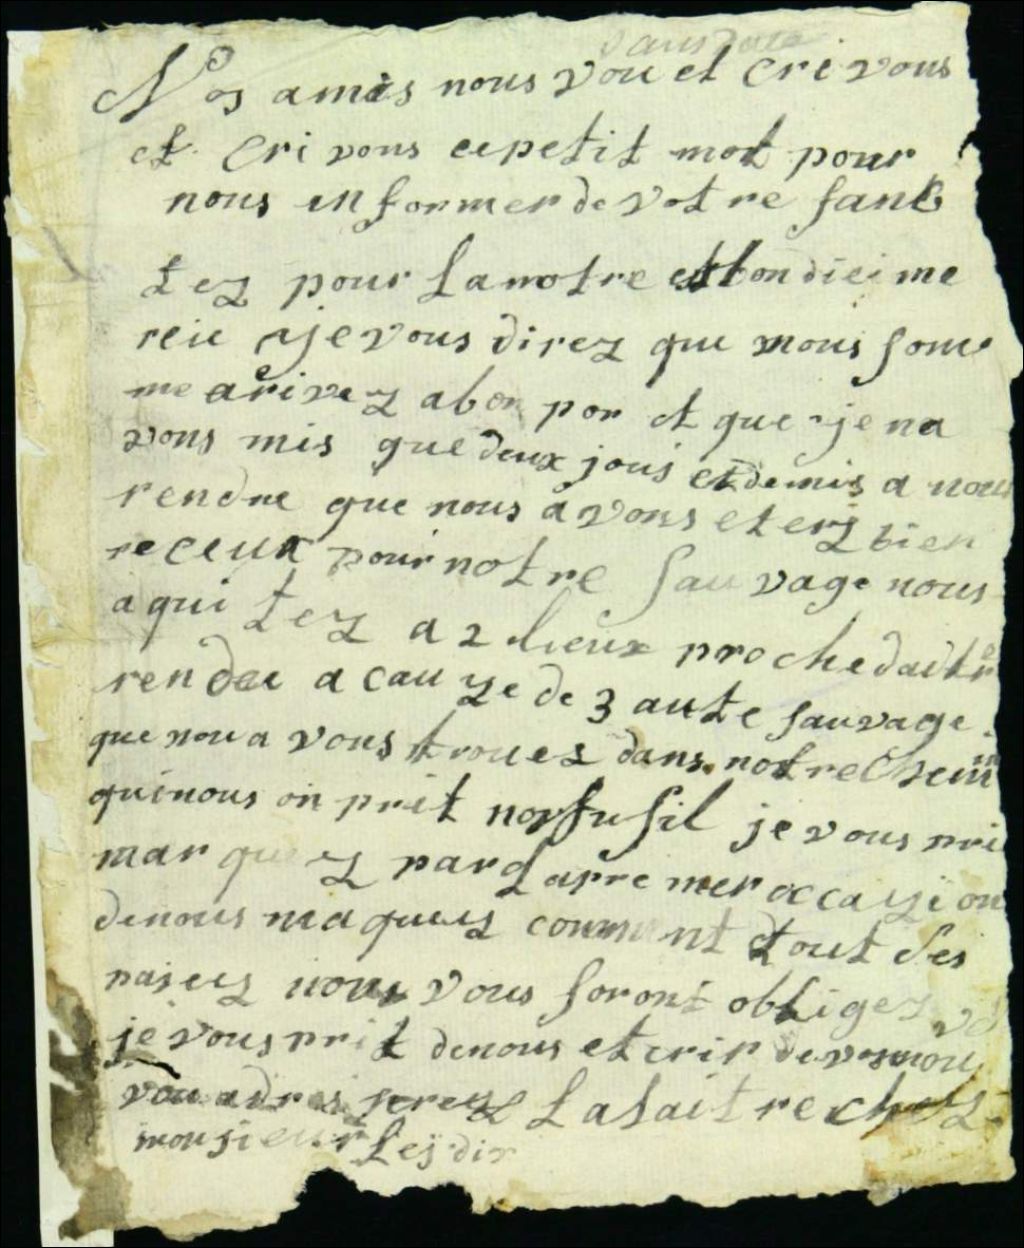 sans date
Nos amis nous vou et cri vons
et cri vons ce petit mot pour
nous in former de vot re sant
tez pour la notre et bon diei me
reie je vous direz que nous some
me arivez a bon por et que je na
vons mis que deux jous et demis a nous
rendre que nous a vons etez bien
receux pour notre sau vage nous
a qui tez a 2 lieux proche daitre
rendue a cau ze de 3 aute sauvage
que nou a vons trouez dans notre Chemin
qui nous on prit nos fusil je vous pri
mar quez par la pre mer occazion
de nous ma quez comment tout ses
pasez nous vous seront obligez
je vous prit de nous et crir de vos nou
vou adres serez La lait re chez
monsieur Lejdir